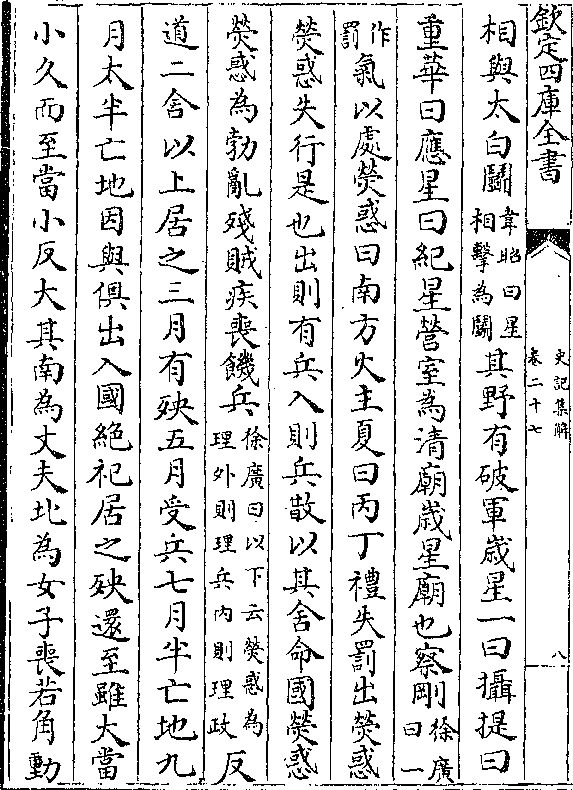 欽定四庫全書
史記集解
卷二十七
八
相與太白鬭韋昭曰星相擊為鬭其野有破軍歲星一曰攝提曰
重華曰應星曰紀星營室為清廟歲星廟也察剛徐廣曰一
作罰氣以處熒惑曰南方火主夏曰丙丁禮失罰出熒惑
熒惑失行是也出則有兵入則兵散以其舍命國熒惑
熒惑為勃亂殘賊疾喪饑兵徐廣曰以下云熒惑為理外則理兵內則理政反
道二舍以上居之三月有殃五月受兵七月半亡地九
月太半亡地因與俱出入國絕祀居之殃還至雖大當
小久而至當小反大其南為丈夫北為女子喪若角動